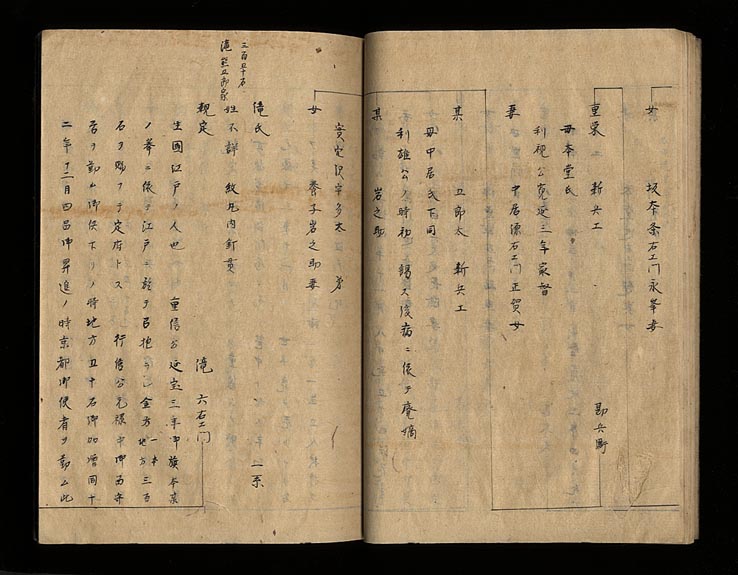 女 坂本条右エ門永峯妻
重栄 新兵エ 勘兵衛
母本堂氏
利視公寛延三年家督
妻 中居源右エ門正賀女
某 卫郎太 新兵エ
母中居氏下同
利雄公ノ時初 錫又後病ニ依テ廃嫡
某 岩之助
実定沢宇多太 弟
女 養子岩之助妻
三百五十石
滝氏 一系
姓不詳 紋丸内釘貫
規定 滝 六右エ門
生国江戸ノ人也 重信公延宝三年御旗本
ノ 依テ江戸ニ 金方地方三百
石ヲ賜フテ定府トス 行信公元禄中御
居ヲ勤ム御使下リノ時地方五十石御加増同十
二年十二月四品御昇進ノ時京都御使者ヲ勤ム此